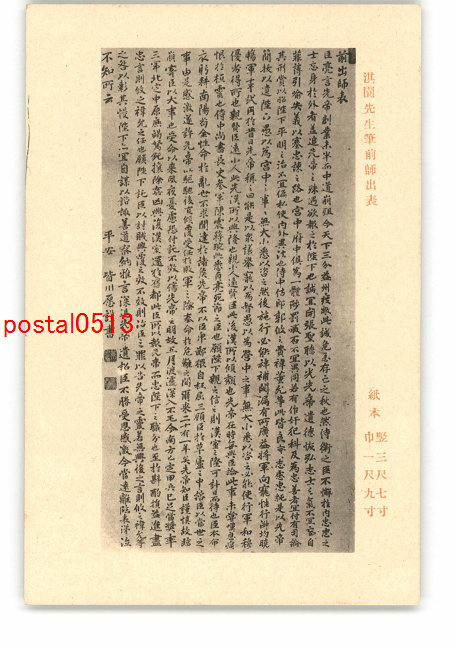 淇園先生筆前師出表
紙本 竪三尺七寸
巾一尺九寸
前出師表
臣亮言先帝創業未半而中道崩殂今天下三分益州疲敝此誠危急存亡之秋也然侍衛之臣不懈於内忠志之
士忘身於外者蓋追先帝之殊遇欲報之於陛下也誠宜開張聖聽以光先帝遺德恢弘志士之氣不宜妄自
菲薄引喩失義以塞忠諫之路也宮中府中俱為一體陟罰臧否不宜異同若有作奸犯科及為忠善者宜付有司論
其刑賞以昭陛下平明之治不宜偏私使内外異法也侍中侍郎郭攸之費禕董允等此皆良實志慮忠純是以先帝
簡拔以遺陛下愚以為宮中之事事無大小悉以咨之然後施行必能裨補闕漏有所廣益將軍向寵性行淑均曉
暢軍事試用於昔日先帝稱之曰能是以衆議舉寵以為督愚以為營中之事事無大小悉以咨之必能使行軍和穆
優劣得所也親賢臣遠小人此先漢所以興隆也親小人遠賢臣此後漢所以傾頹也先帝在時每與臣論此事未嘗歎息痛
恨於桓靈也侍中尚書長史參軍此悉貞亮死節之臣也願陛下親之信之則漢室之隆可計日而待也臣本布
衣躬耕南陽苟全性命於亂世不求聞達於諸侯先帝不以臣卑鄙猥自枉屈三顧臣於草廬之中諮臣以當世之
事由是感激遂許先帝以驅馳後值傾覆受任於敗軍之際奉命於危難之間爾來二十有一年矣先帝知臣謹慎故臨
崩寄臣以大事也受命以來夙夜憂慮恐付託不效以傷先帝之明故五月渡瀘深入不毛今南方已定甲兵已足當奬率
三軍北定中原庶竭駑鈍攘除姦凶興復漢室還於舊都此臣所以報先帝而忠陛下之職分也至於斟酌損益進盡
忠言則攸之禕允之任也願陛下託臣以討賊興復之效不效則治臣之罪以告先帝之靈若無興德之言則攸之禕允等
之咎以彰其慢陛下亦宜自謀以諮諏善道察納雅言深追先帝遺詔臣不勝受恩感激今當遠離臨表涕泣
不知所云
平安 皆川愿謹書
postal0513